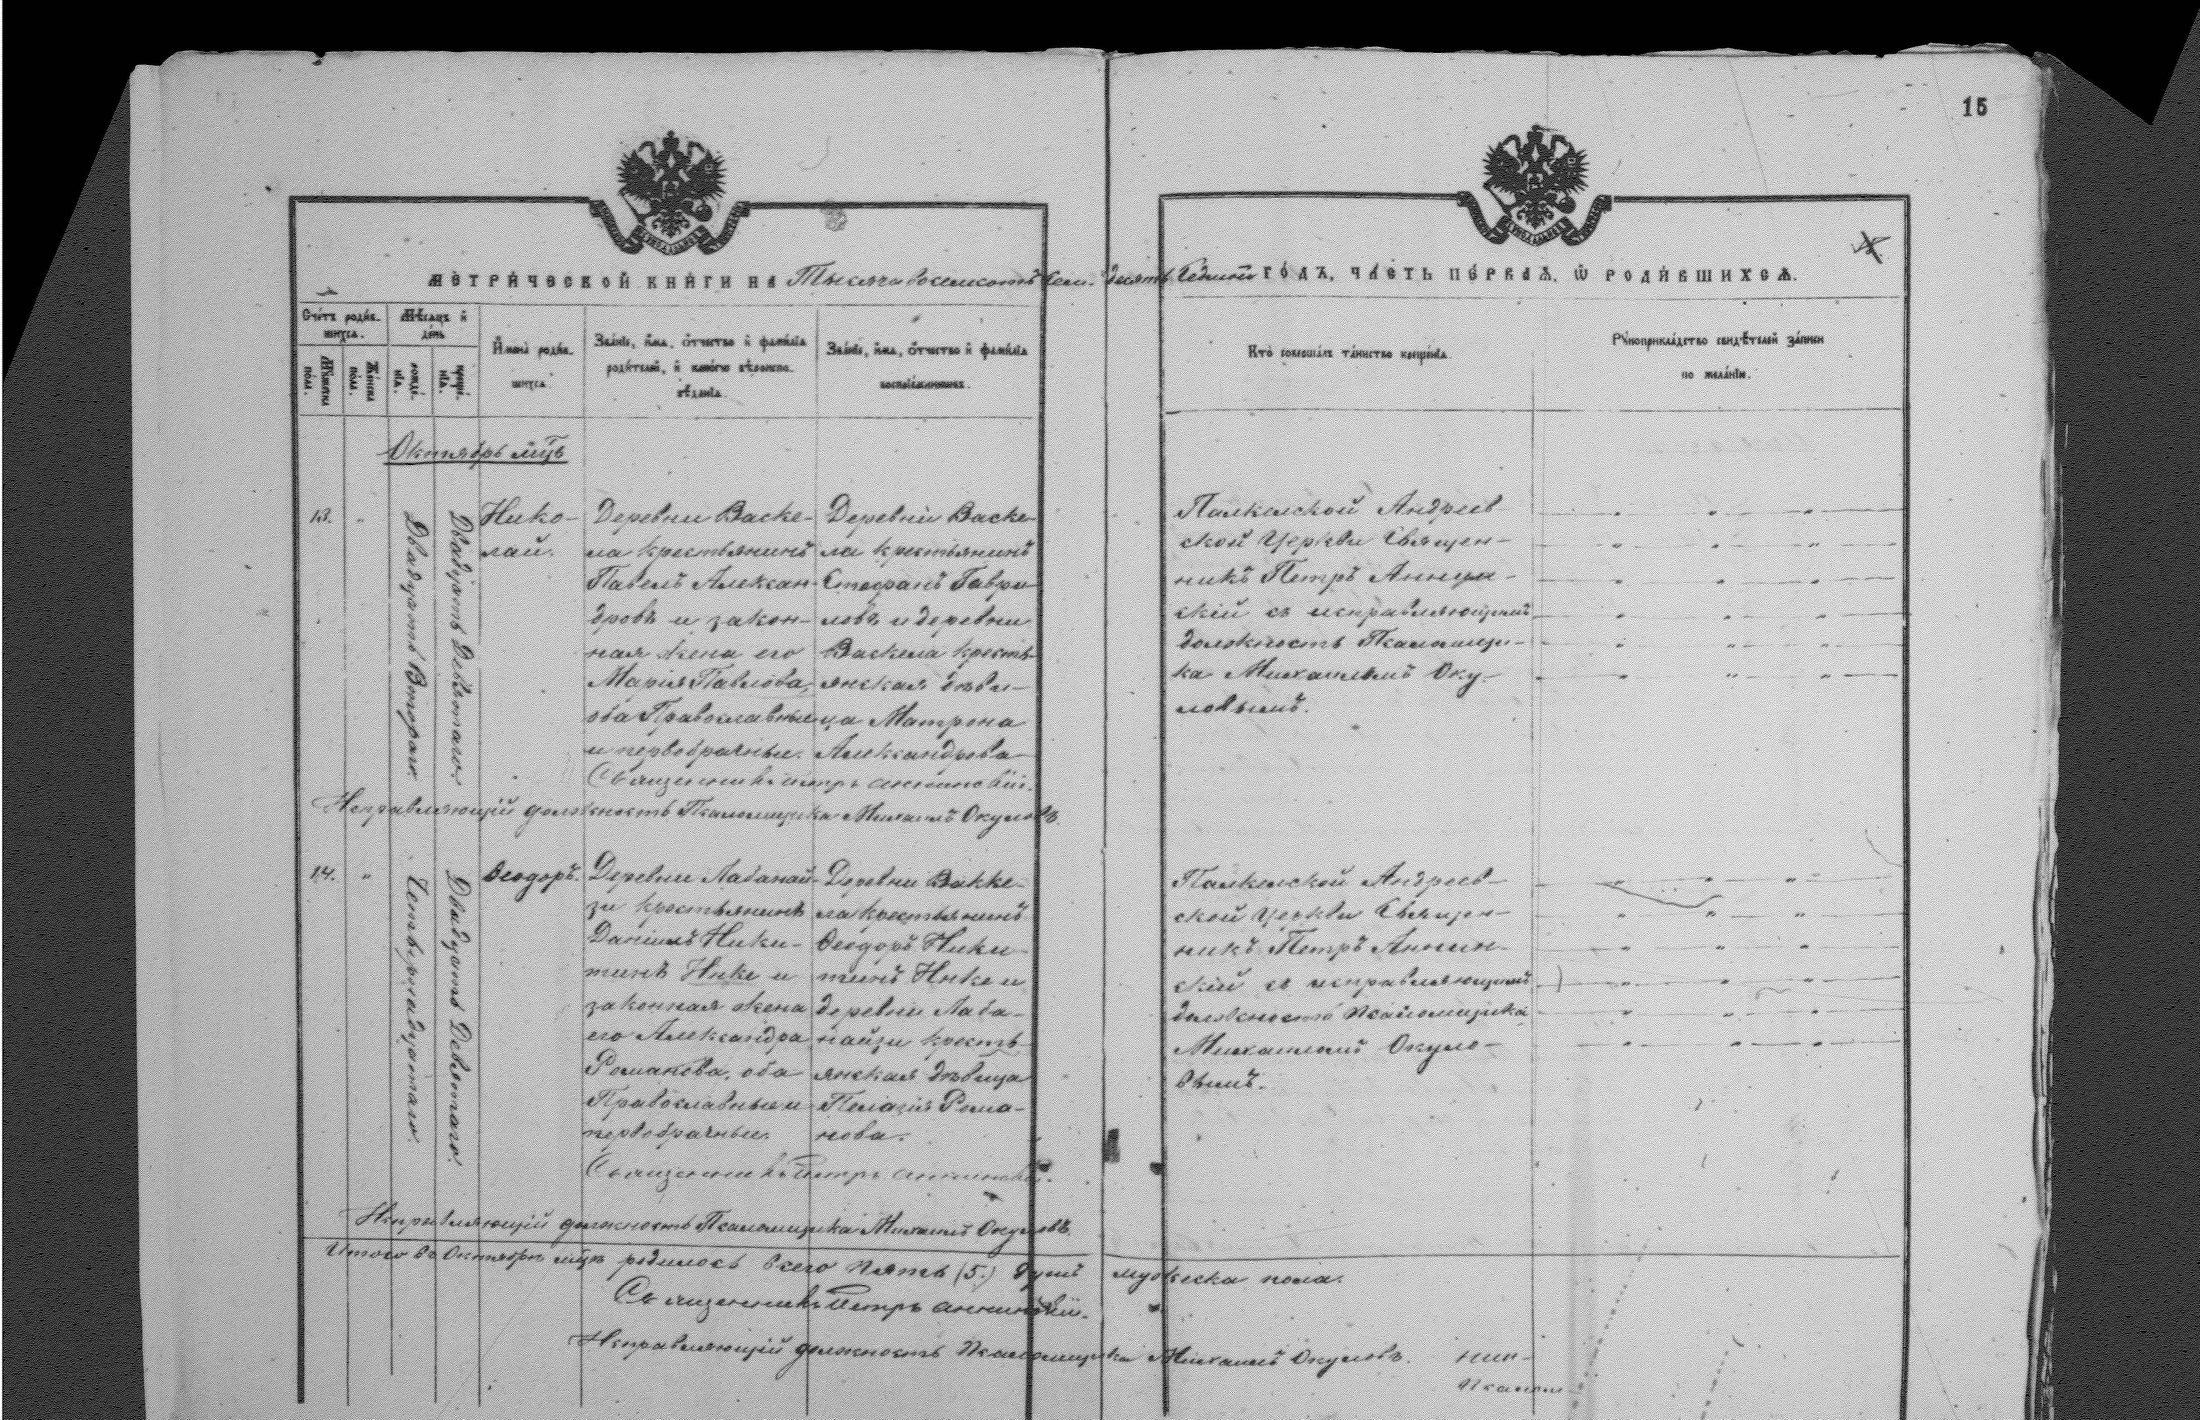 15
МЕТРИЧЕСКОЙ КНИГИ НА Тысяча восемсотъ семьдесятъ седьмой ГОДЪ, ЧАСТЬ ПЕРВАЯ, Ѡ РОДИВШИХСЯ.
Счетъ родившихся.
Мужеска пола.
Женска пола.
Мѣсяцъ и день
рожденія.
крещенія.
Имена родившихся.
Званіе, имя, отчество и фамилія родителей, и какого вѣроисповѣданія.
Званіе, имя, отчество и фамилія воспріемниковъ.
Кто совершалъ таинство крещенія.
Рукоприкладство свидѣтелей записи по желанію.
Октябрь мцъ
13.
Двадцать Втораго.
Двадцать Девятаго.
Нико-
лай.
Деревни Васке-
ла крестьянинъ
Павелъ Алексан-
дровъ и закон-
ная жена его
Марія Павлова,
оба Православные
и первобрачные.
Деревни Васке-
ла крестьянинъ
Стефанъ Гаври-
ловъ и деревни
Васкела кресть-
янская дѣви-
ца Матрона
Александрова
Палкелской Андреев-
ской Церкви Священ-
никъ Петръ Аннин-
скій съ исправляющимъ
должность Псаломщи-
ка Михаиломъ Оку-
ловымъ.
Священникъ Петръ Аннинскій.
Исправляющій должность Псаломщика Михаилъ Окуловъ.
14.
Четырнадцатаго.
Двадцать Девятаго.
Ѳеодоръ.
Деревни Лабанай-
зи крестьянинъ
Даніилъ Ники-
тинъ Инке и
законная жена
его Александра
Романова, оба
Православные и
первобрачные.
Деревни Вакке-
ла крестьянинъ
Ѳеодоръ Ники-
тинъ Инке и
деревни Лаба-
найзи кресть-
янская дѣвица
Пелагія Рома-
нова.
Палкелской Андреев-
ской Церкви Священ-
никъ Петръ Аннин-
скій съ исправляющимъ
должность псаломщика
Михаиломъ Окуло-
вымъ.
Священникъ Петръ Аннинскій.
Исправляющій должность Псаломщика Михаилъ Окуловъ.
Итого въ Октябрѣ мцѣ родилось всего пять (5.) душъ мужеска пола.
Священникъ Петръ Аннинскій.
Исправляющій должность Псаломщика Михаилъ Окуловъ.